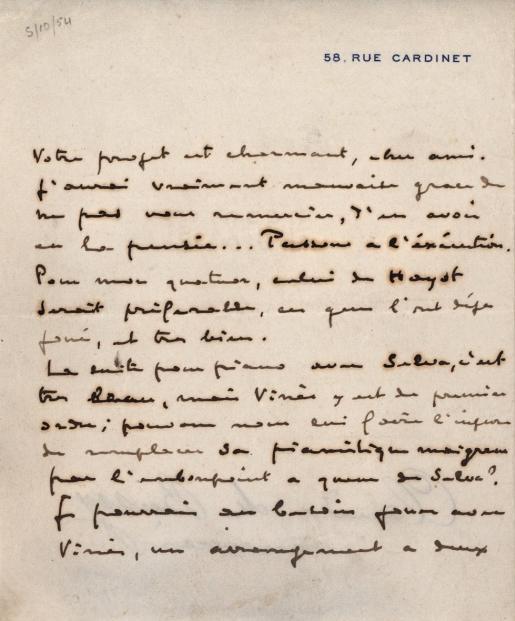 5/10/54
58, RUE CARDINET
Votre projet est charmant, cher ami.
J'aurai vraiment mauvaise grace de
ne pas vous remercier, d'en avoir
eu la pensée... Passons a l'éxécution.
Pour mon quatuor, celui de Hayot
serait préférable, ceux l'ont déja
joué, et très bien.
La suite pour piano avec Selva, c'est
très beau, mais Viñès y est de premier
ordre; pouvons nous lui faire l'injure
de remplacer sa pianistique maigreur
par l'embonpoint a queue de Selva?
Je pourrais au besoin jouer avec
Viñès, un arrangement a deux